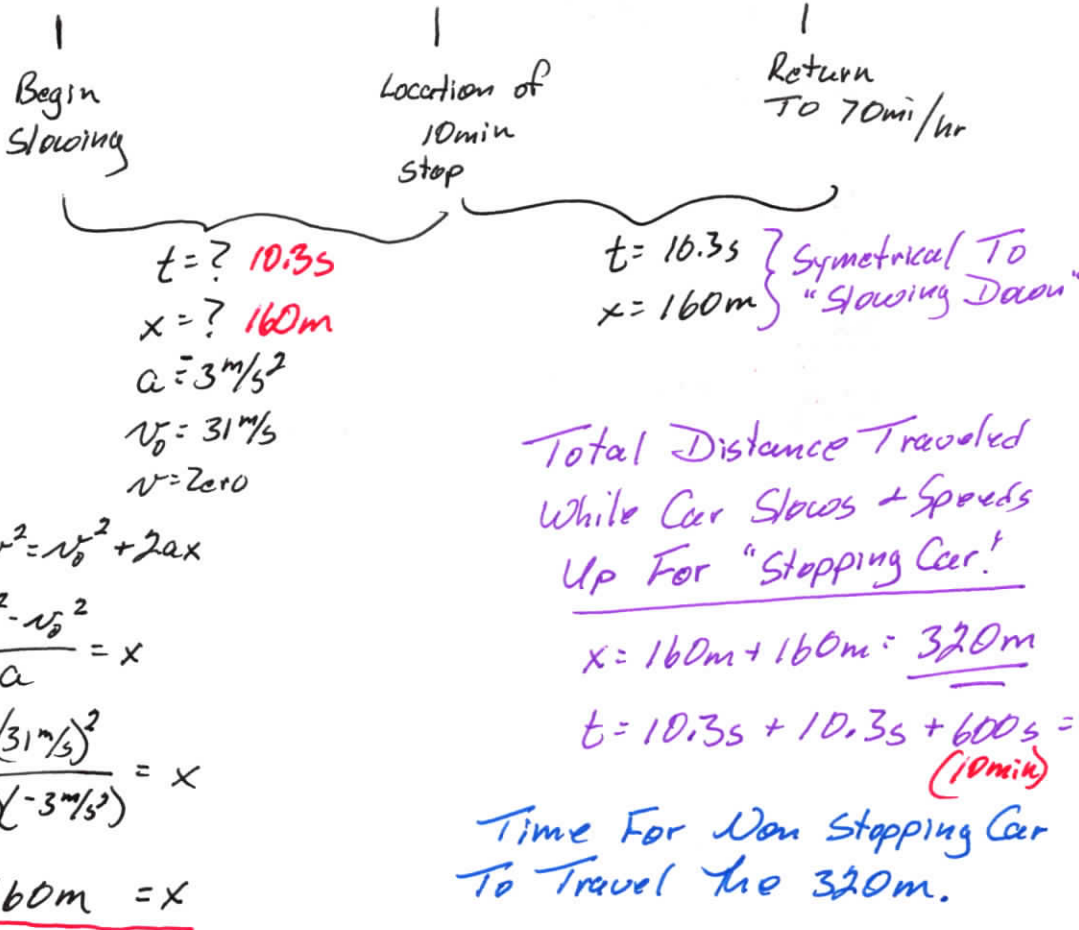 Begin
Slowing
Location of
10min
Stop
Return
To 70mi/hr
t = ? 10.3s
x = ? 160m
a = -3 m/s²
v₀ = 31 m/s
v = Zero
v² = v₀² + 2ax
² - v₀²
a = x
(31 m/s)²
(-3 m/s²) = x
60m = x
t = 10.3s } Symetrical To
x = 160m } "Slowing Down"
Total Distance Traveled
While Car Slows + Speeds
Up For "Stopping Car!"
x = 160m + 160m = 320m
t = 10.3s + 10.3s + 600s =
(10min)
Time For Non Stopping Car
To Travel the 320m.